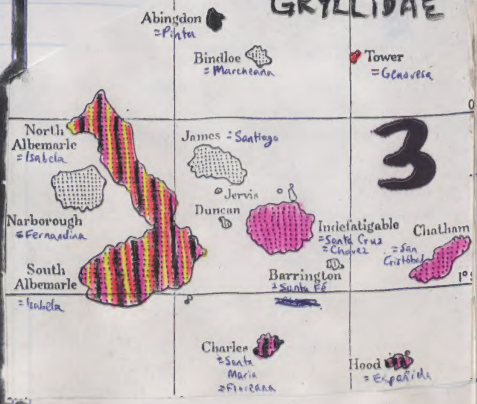 GRYLLIDAE
Abingdon
= Pinta
Bindloe
= Marchena
Tower
= Genovesa
0
North
Albemarle
= Isabela
James = Santiago
3
Jervis
Duncan
Narborough
= Fernandina
Indefatigable
= Santa Cruz
= Chavez
Chatham
= San
Cristóbal
South
Albemarle
= Isabela
Barrington
= Santa Fé
1°
Charles
= Santa
Maria
= Floreana
Hood
= Española